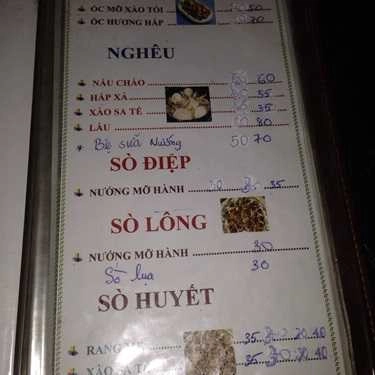 ỐC MỠ XÀO TỎI ........ 50
ỐC HƯƠNG HẤP ........ 70
NGHÊU
NẤU CHÁO ........ 60
HẤP XẢ ........ 55
XÀO SA TẾ ........ 35
LẨU ........ 80
Bẹ sữa Nướng 50 70
SÒ ĐIỆP
NƯỚNG MỠ HÀNH ........ 35
SÒ LÔNG
NƯỚNG MỠ HÀNH ........ 30
Sò lụa 30
SÒ HUYẾT
RANG ........ 35 40
XÀO ........ 35 40